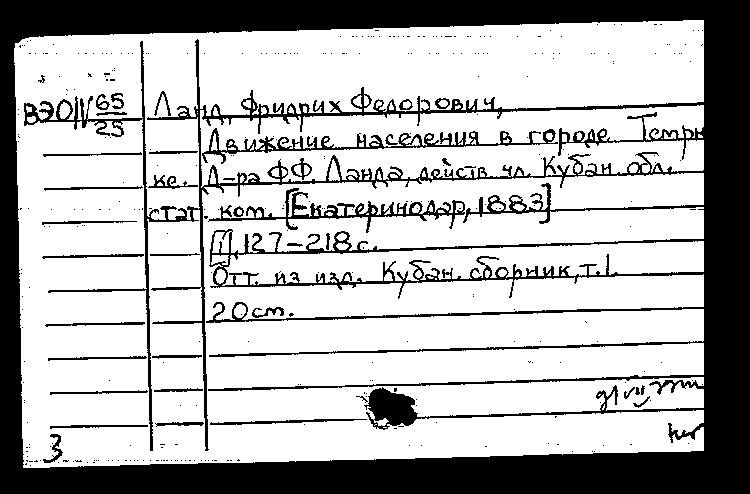 ВЭО IV 65/25 Ланд, Фридрих Федорович,
Движение населения в городе Темрю
ке. Д-ра Ф.Ф. Ланда, действ. чл. Кубан. обл.
стат. ком. [Екатеринодар, 1883]
[1], 127-218 с.
Отт. из изд. Кубан. сборник, т. I.
20 см.
3